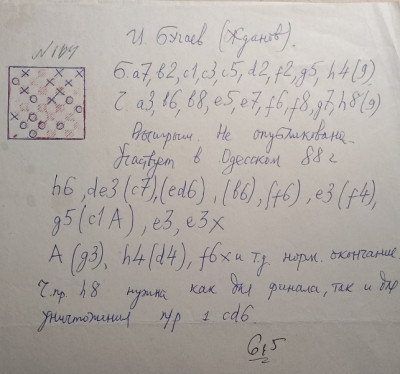 И. Бугаев (Жданов).
№ 164
Б. a7, b2, c1, c3, c5, d2, f2, g5, h4 (9)
Ч. a3, b6, b8, e5, e7, f6, f8, g7, h8 (9)
Выигрыш. Не опубликована.
Участвует в Одесском 88 г
h6, de3 (c7), (ed6), (b6), (f6), e3 (f4),
g5 (c1 A), e3, e3x
A (g3), h4 (d4), f6x и т.д. норм. окончание.
Ч. пр. h8 нужна как для финала, так и для
уничтожения п/р 1 cd6.